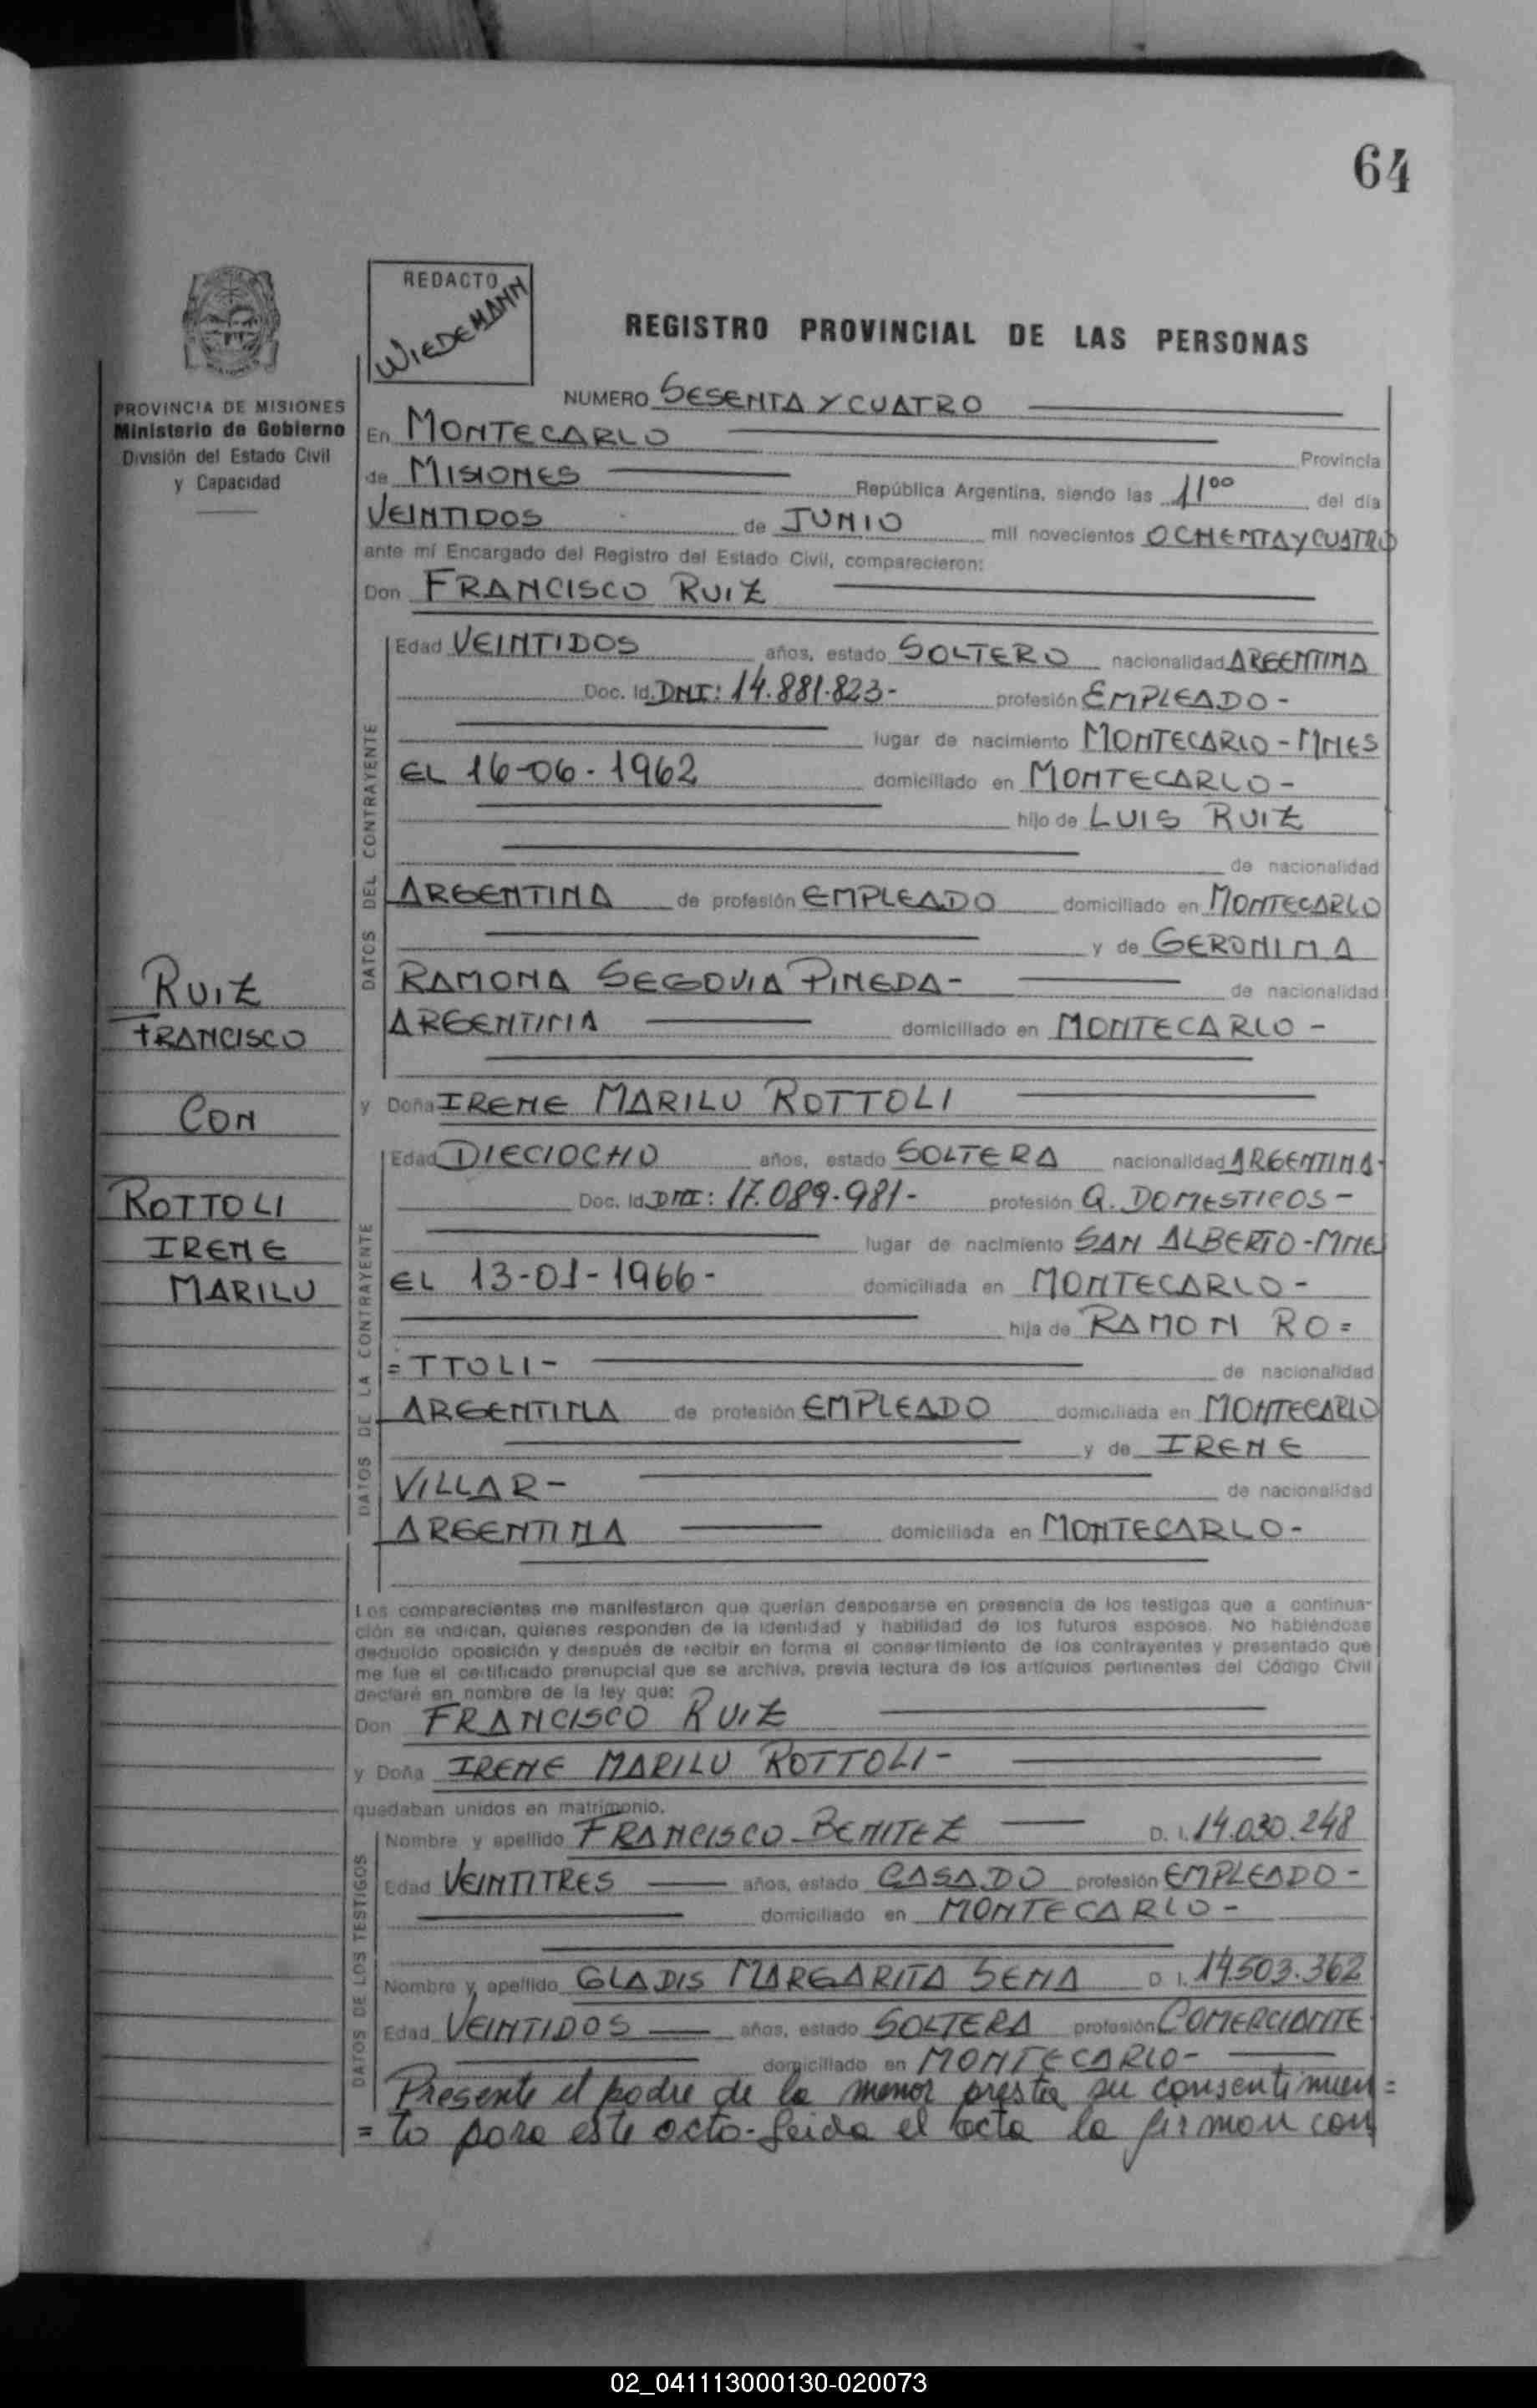 64
REDACTO
WIEDEMANN
REGISTRO PROVINCIAL DE LAS PERSONAS
PROVINCIA DE MISIONES
Ministerio de Gobierno
División del Estado Civil
y Capacidad
NUMERO SESENTA Y CUATRO
En MONTECARLO Provincia
de MISIONES República Argentina, siendo las 11⁰⁰ del día
VEINTIDOS de JUNIO mil novecientos OCHENTA Y CUATRO
ante mí Encargado del Registro del Estado Civil, comparecieron:
Don FRANCISCO RUIZ
DATOS DEL CONTRAYENTE
Edad VEINTIDOS años, estado SOLTERO nacionalidad ARGENTINA
Doc. Id. DNI: 14.881.823- profesión EMPLEADO-
lugar de nacimiento MONTECARLO-MNES
EL 16-06-1962 domiciliado en MONTECARLO-
hijo de LUIS RUIZ
de nacionalidad
ARGENTINA de profesión EMPLEADO domiciliado en MONTECARLO
y de GERONIMA
RAMONA SEGOVIA PINEDA- de nacionalidad
ARGENTINA domiciliado en MONTECARLO-
RUIZ
FRANCISCO
CON
ROTTOLI
IRENE
MARILU
y Doña IRENE MARILU ROTTOLI
DATOS DE LA CONTRAYENTE
Edad DIECIOCHO años, estado SOLTERA nacionalidad ARGENTINA-
Doc. Id. DNI: 17.089.981- profesión Q. DOMESTICOS-
lugar de nacimiento SAN ALBERTO-MNE
EL 13-01-1966- domiciliada en MONTECARLO-
hija de RAMON RO=
=TTOLI- de nacionalidad
ARGENTINA de profesión EMPLEADO domiciliada en MONTECARLO
y de IRENE
VILLAR- de nacionalidad
ARGENTINA domiciliada en MONTECARLO-
Los comparecientes me manifestaron que querían desposarse en presencia de los testigos que a continua-
ción se indican, quienes responden de la identidad y habilidad de los futuros esposos. No habiéndose
deducido oposición y después de recibir en forma el consentimiento de los contrayentes y presentado que
me fue el certificado prenupcial que se archiva, previa lectura de los artículos pertinentes del Código Civil
declaré en nombre de la ley que:
Don FRANCISCO RUIZ
y Doña IRENE MARILU ROTTOLI-
quedaban unidos en matrimonio.
DATOS DE LOS TESTIGOS
Nombre y apellido FRANCISCO BENITEZ D. I. 14.030.248
Edad VEINTITRES años, estado CASADO profesión EMPLEADO-
domiciliado en MONTECARLO-
Nombre y apellido GLADIS MARGARITA SENA D. I. 14.503.362
Edad VEINTIDOS años, estado SOLTERA profesión COMERCIANTE
domiciliado en MONTECARLO-
Presente el padre de la menor presta su consentimien=
=to para este acto-Leida el acta la firman con
02_041113000130-020073